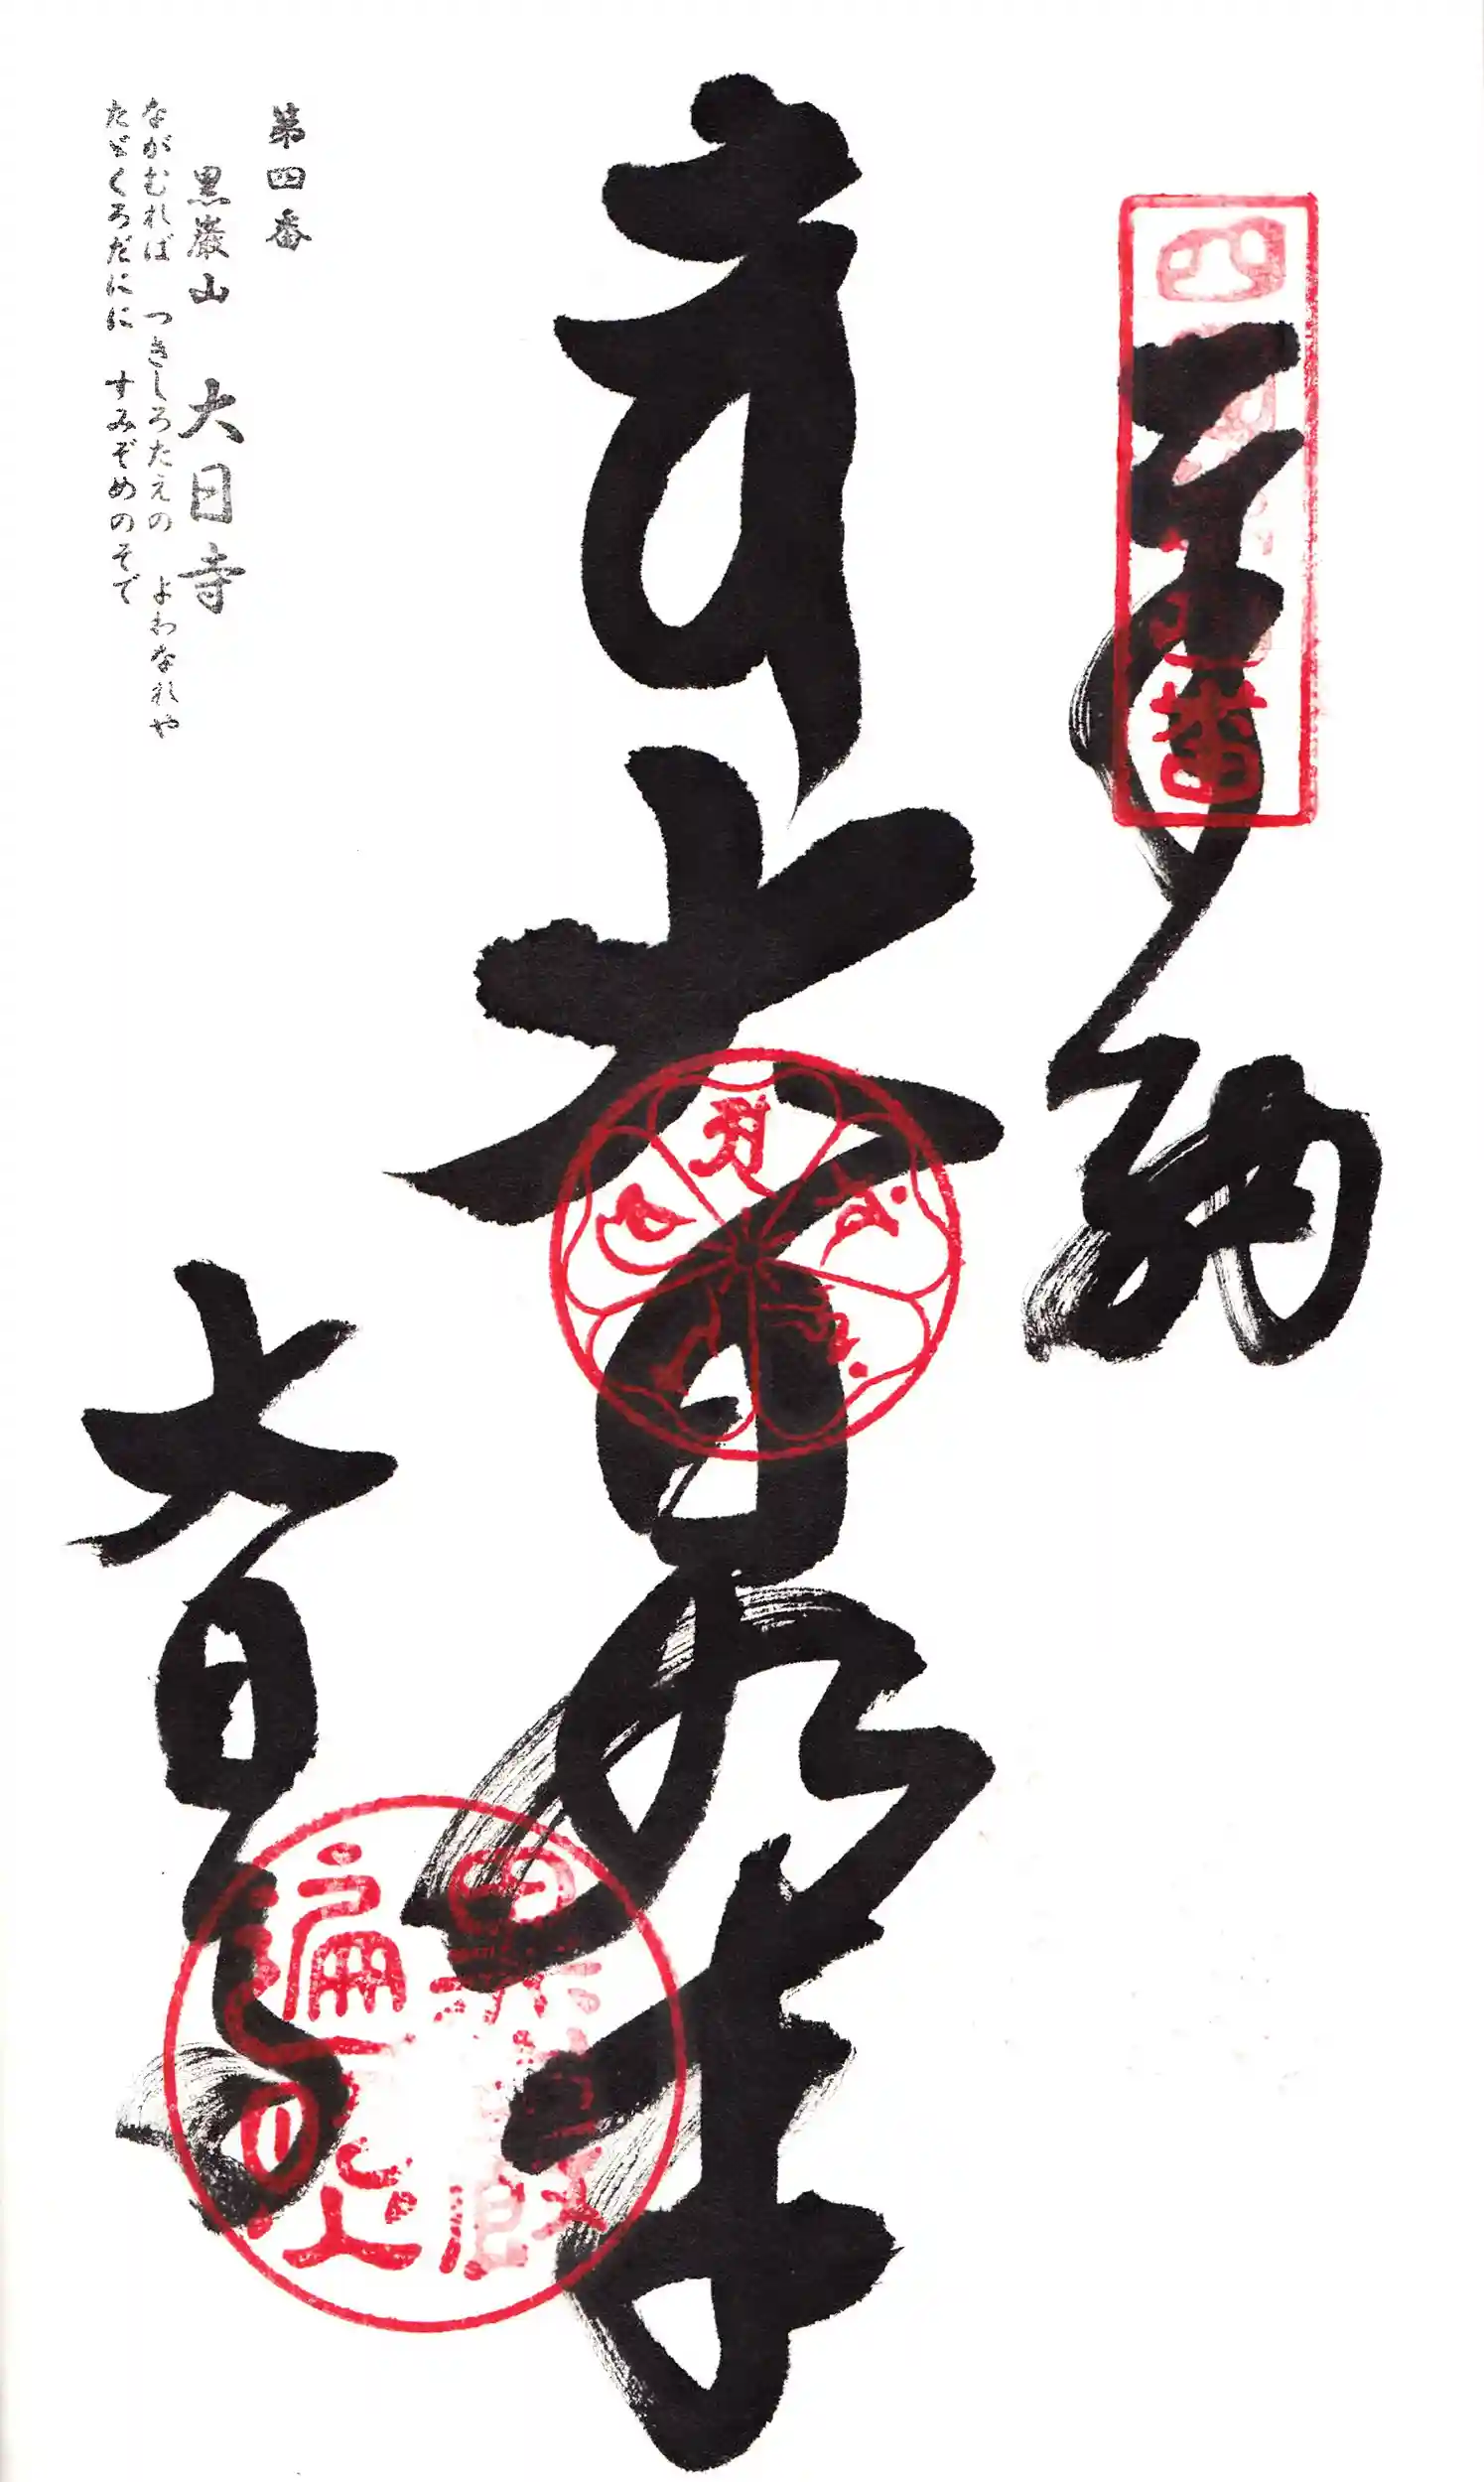 奉納
大日如来
大日寺
第四番
黒巌山 大日寺
ながむれば つきしろたえの よわなれや
たゞくろだにに すみぞめのそで